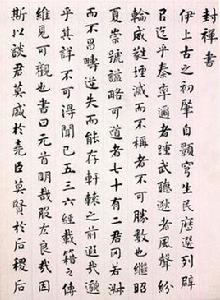 封禪書
伊上古之初肇自顥穹生民歷選列辟
以迄乎秦率邇者踵武逖聽者風聲紛
綸威蕤堙滅而不稱者不可勝數也繼昭
夏崇號諡略可道者七十有二君罔若淑
而不昌疇逆失而能存軒轅之前遐哉邈
乎其詳不可得聞已五三六經載籍之傳
維見可觀也書曰元首明哉股肱良哉因
斯以談君莫盛於堯臣莫賢於后稷后稷